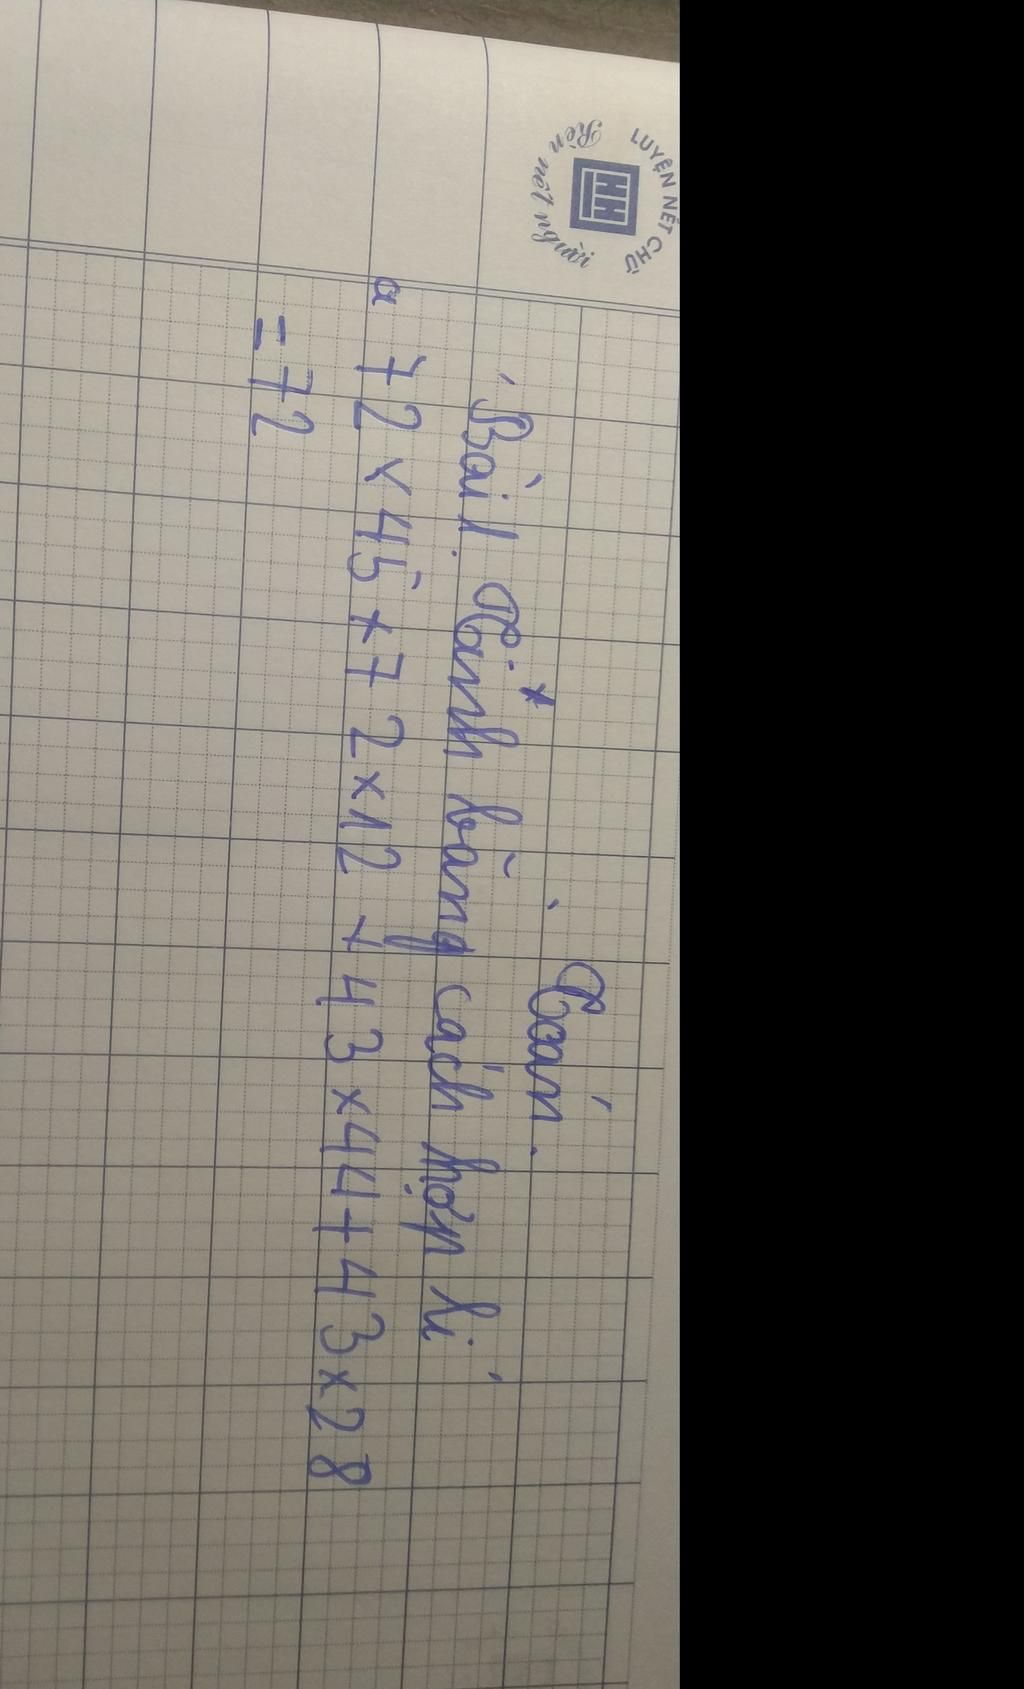 LUYỆN NÉT CHỮ
Rèn nết người
Toán.
Bài 1. Tính bằng cách hợp lí
a 72 × 45 + 72 × 12 + 43 × 44 + 43 × 28
= 72